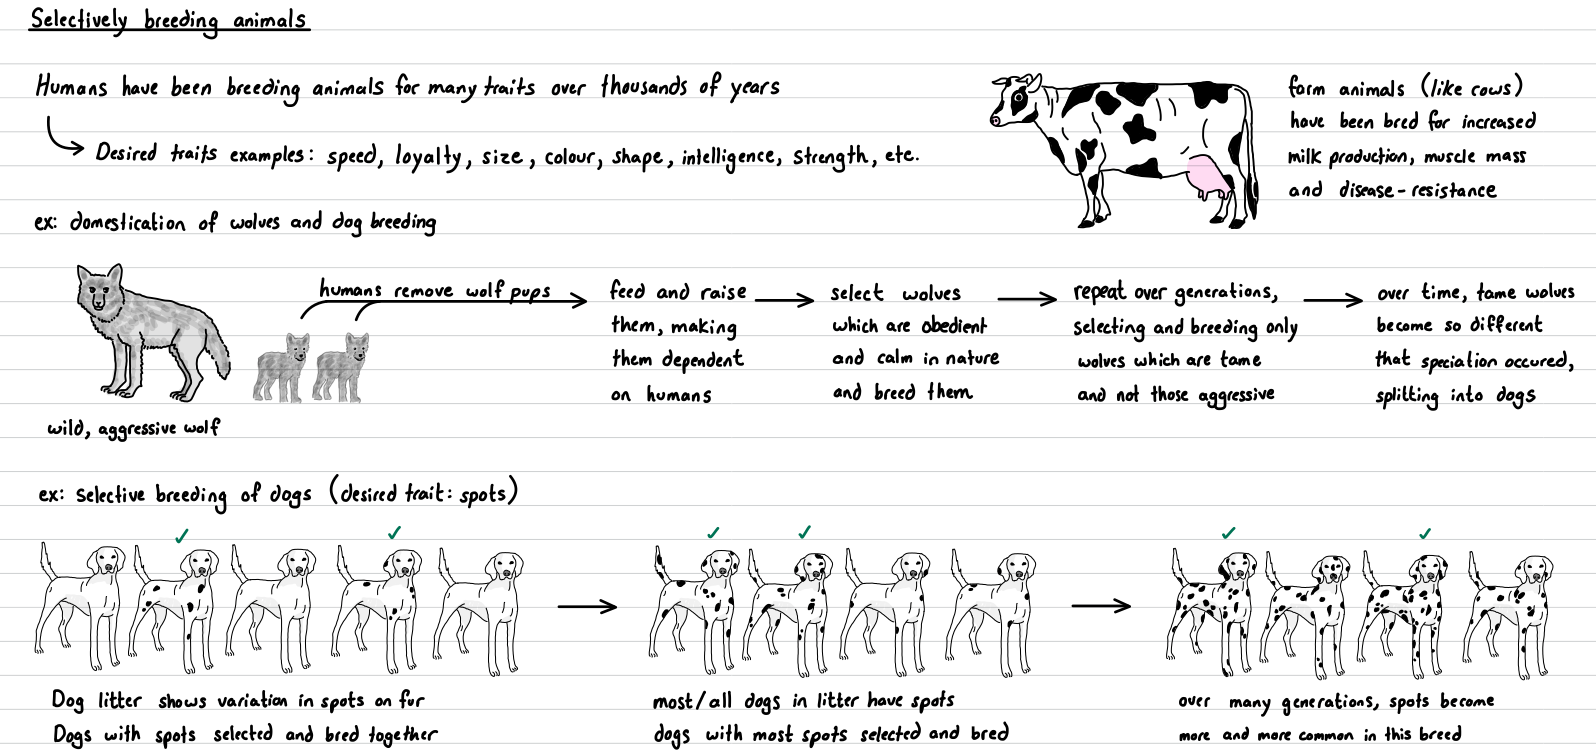 Selectively breeding animals
Humans have been breeding animals for many traits over thousands of years
Desired traits examples: speed, loyalty, size, colour, shape, intelligence, strength, etc.
farm animals (like cows)
have been bred for increased
milk production, muscle mass
and disease-resistance
ex: domestication of wolves and dog breeding
wild, aggressive wolf
humans remove wolf pups
feed and raise
them, making
them dependent
on humans
select wolves
which are obedient
and calm in nature
and breed them
repeat over generations,
selecting and breeding only
wolves which are tame
and not those aggressive
over time, tame wolves
become so different
that speciation occured,
splitting into dogs
ex: selective breeding of dogs (desired trait: spots)
Dog litter shows variation in spots on fur
Dogs with spots selected and bred together
most/all dogs in litter have spots
dogs with most spots selected and bred
over many generations, spots become
more and more common in this breed